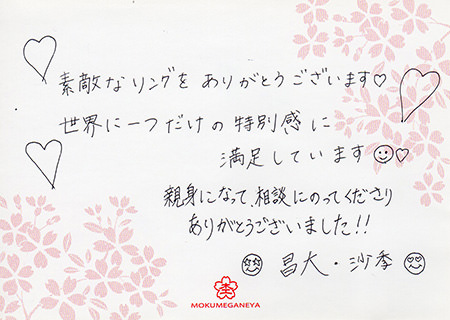 素敵なリングをありがとうございます♡
世界に一つだけの特別感に
満足しています☺♡
親身になって、相談にのってくださり
ありがとうございました!!
昌大・沙季
MOKUMEGANEYA